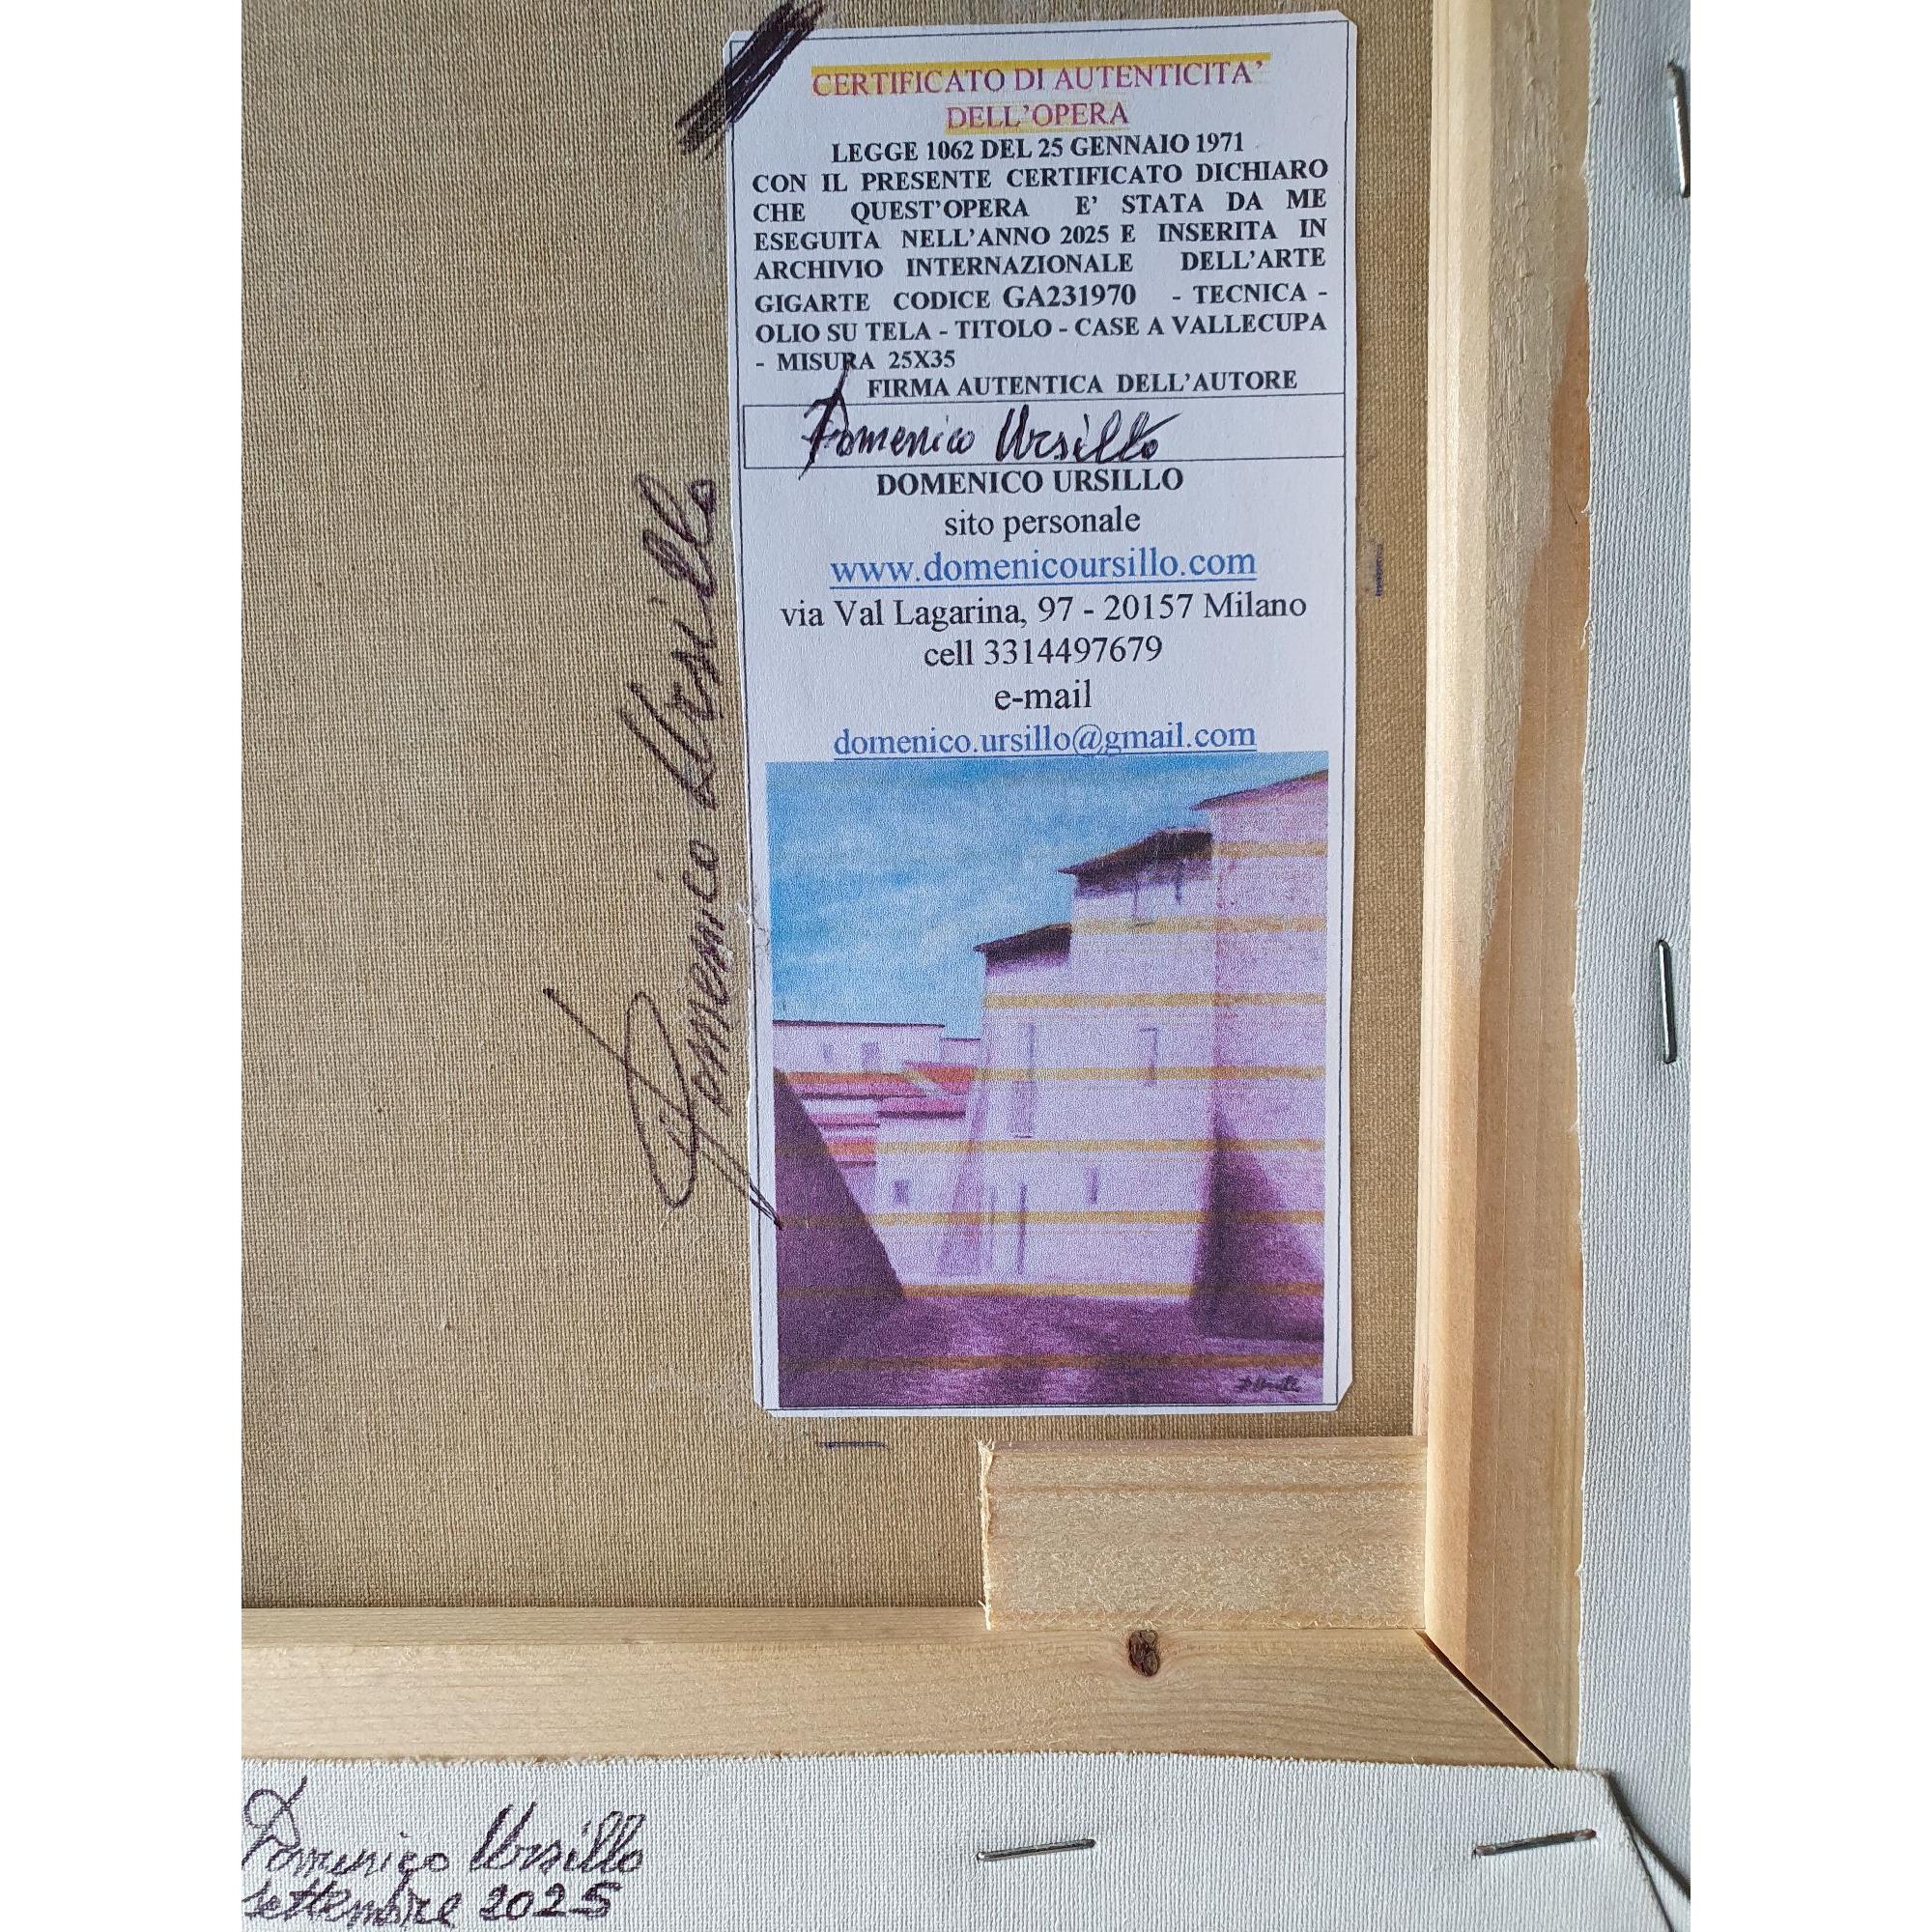 CERTIFICATO DI AUTENTICITA’
DELL’OPERA
LEGGE 1062 DEL 25 GENNAIO 1971
CON IL PRESENTE CERTIFICATO DICHIARO
CHE QUEST’OPERA E’ STATA DA ME
ESEGUITA NELL’ANNO 2025 E INSERITA IN
ARCHIVIO INTERNAZIONALE DELL’ARTE
GIGARTE CODICE GA231970 - TECNICA -
OLIO SU TELA - TITOLO - CASE A VALLECUPA
- MISURA 25X35
FIRMA AUTENTICA DELL’AUTORE
Domenico Ursillo
DOMENICO URSILLO
sito personale
www.domenicoursillo.com
via Val Lagarina, 97 - 20157 Milano
cell 3314497679
e-mail
domenico.ursillo@gmail.com
D Ursillo
Domenico Ursillo
Domenico Ursillo
settembre 2025